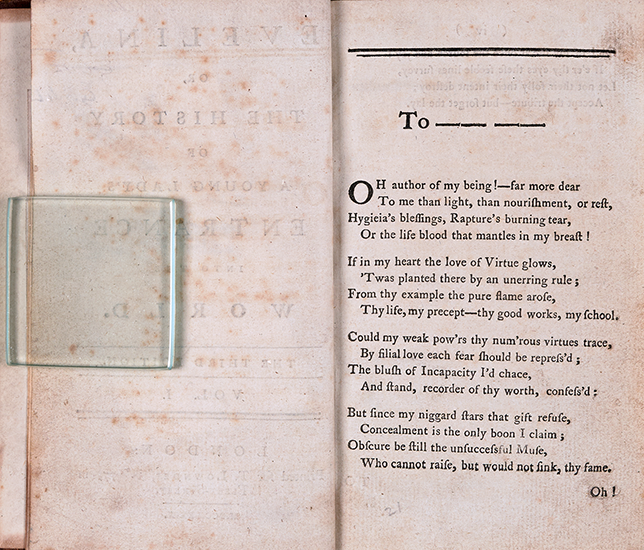 To — —
OH author of my being!—far more dear
To me than light, than nouriſhment, or reſt,
Hygieia's bleſſings, Rapture's burning tear,
Or the life blood that mantles in my breaſt!
If in my heart the love of Virtue glows,
'Twas planted there by an unerring rule;
From thy example the pure flame aroſe,
Thy life, my precept—thy good works, my ſchool.
Could my weak pow'rs thy num'rous virtues trace,
By filial love each fear ſhould be repreſs'd;
The bluſh of Incapacity I'd chace,
And ſtand, recorder of thy worth, confeſs'd:
But ſince my niggard ſtars that gift refuſe,
Concealment is the only boon I claim;
Obſcure be ſtill the unſucceſsful Muſe,
Who cannot raiſe, but would not ſink, thy fame.
Oh!